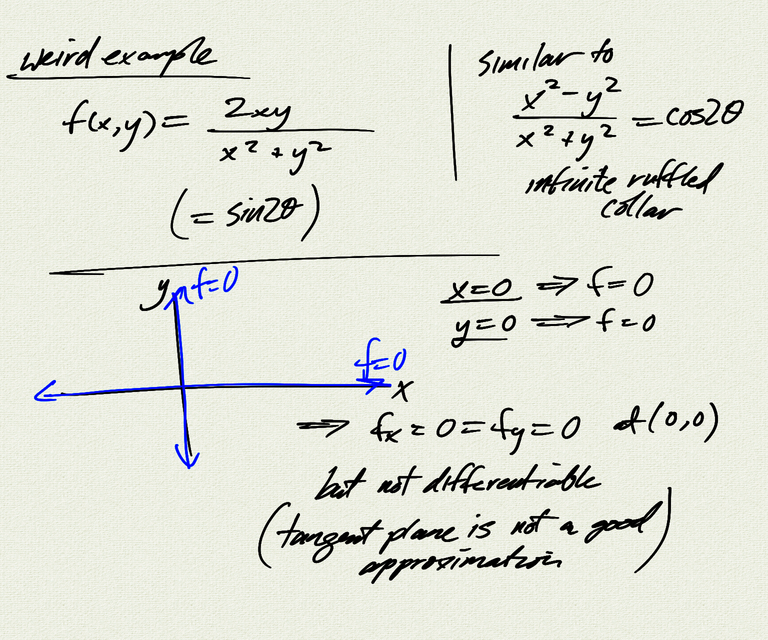 weird example
f(x,y) = 2xy / x² + y²
(= sin2θ)
similar to
x² - y² / x² + y² = cos2θ
infinite ruffled
collar
y f=0
f=0
x
x=0 ⇒ f=0
y=0 ⇒ f=0
⇒ fx = 0 = fy = 0 at (0,0)
but not differentiable
(tangent plane is not a good
approximation)